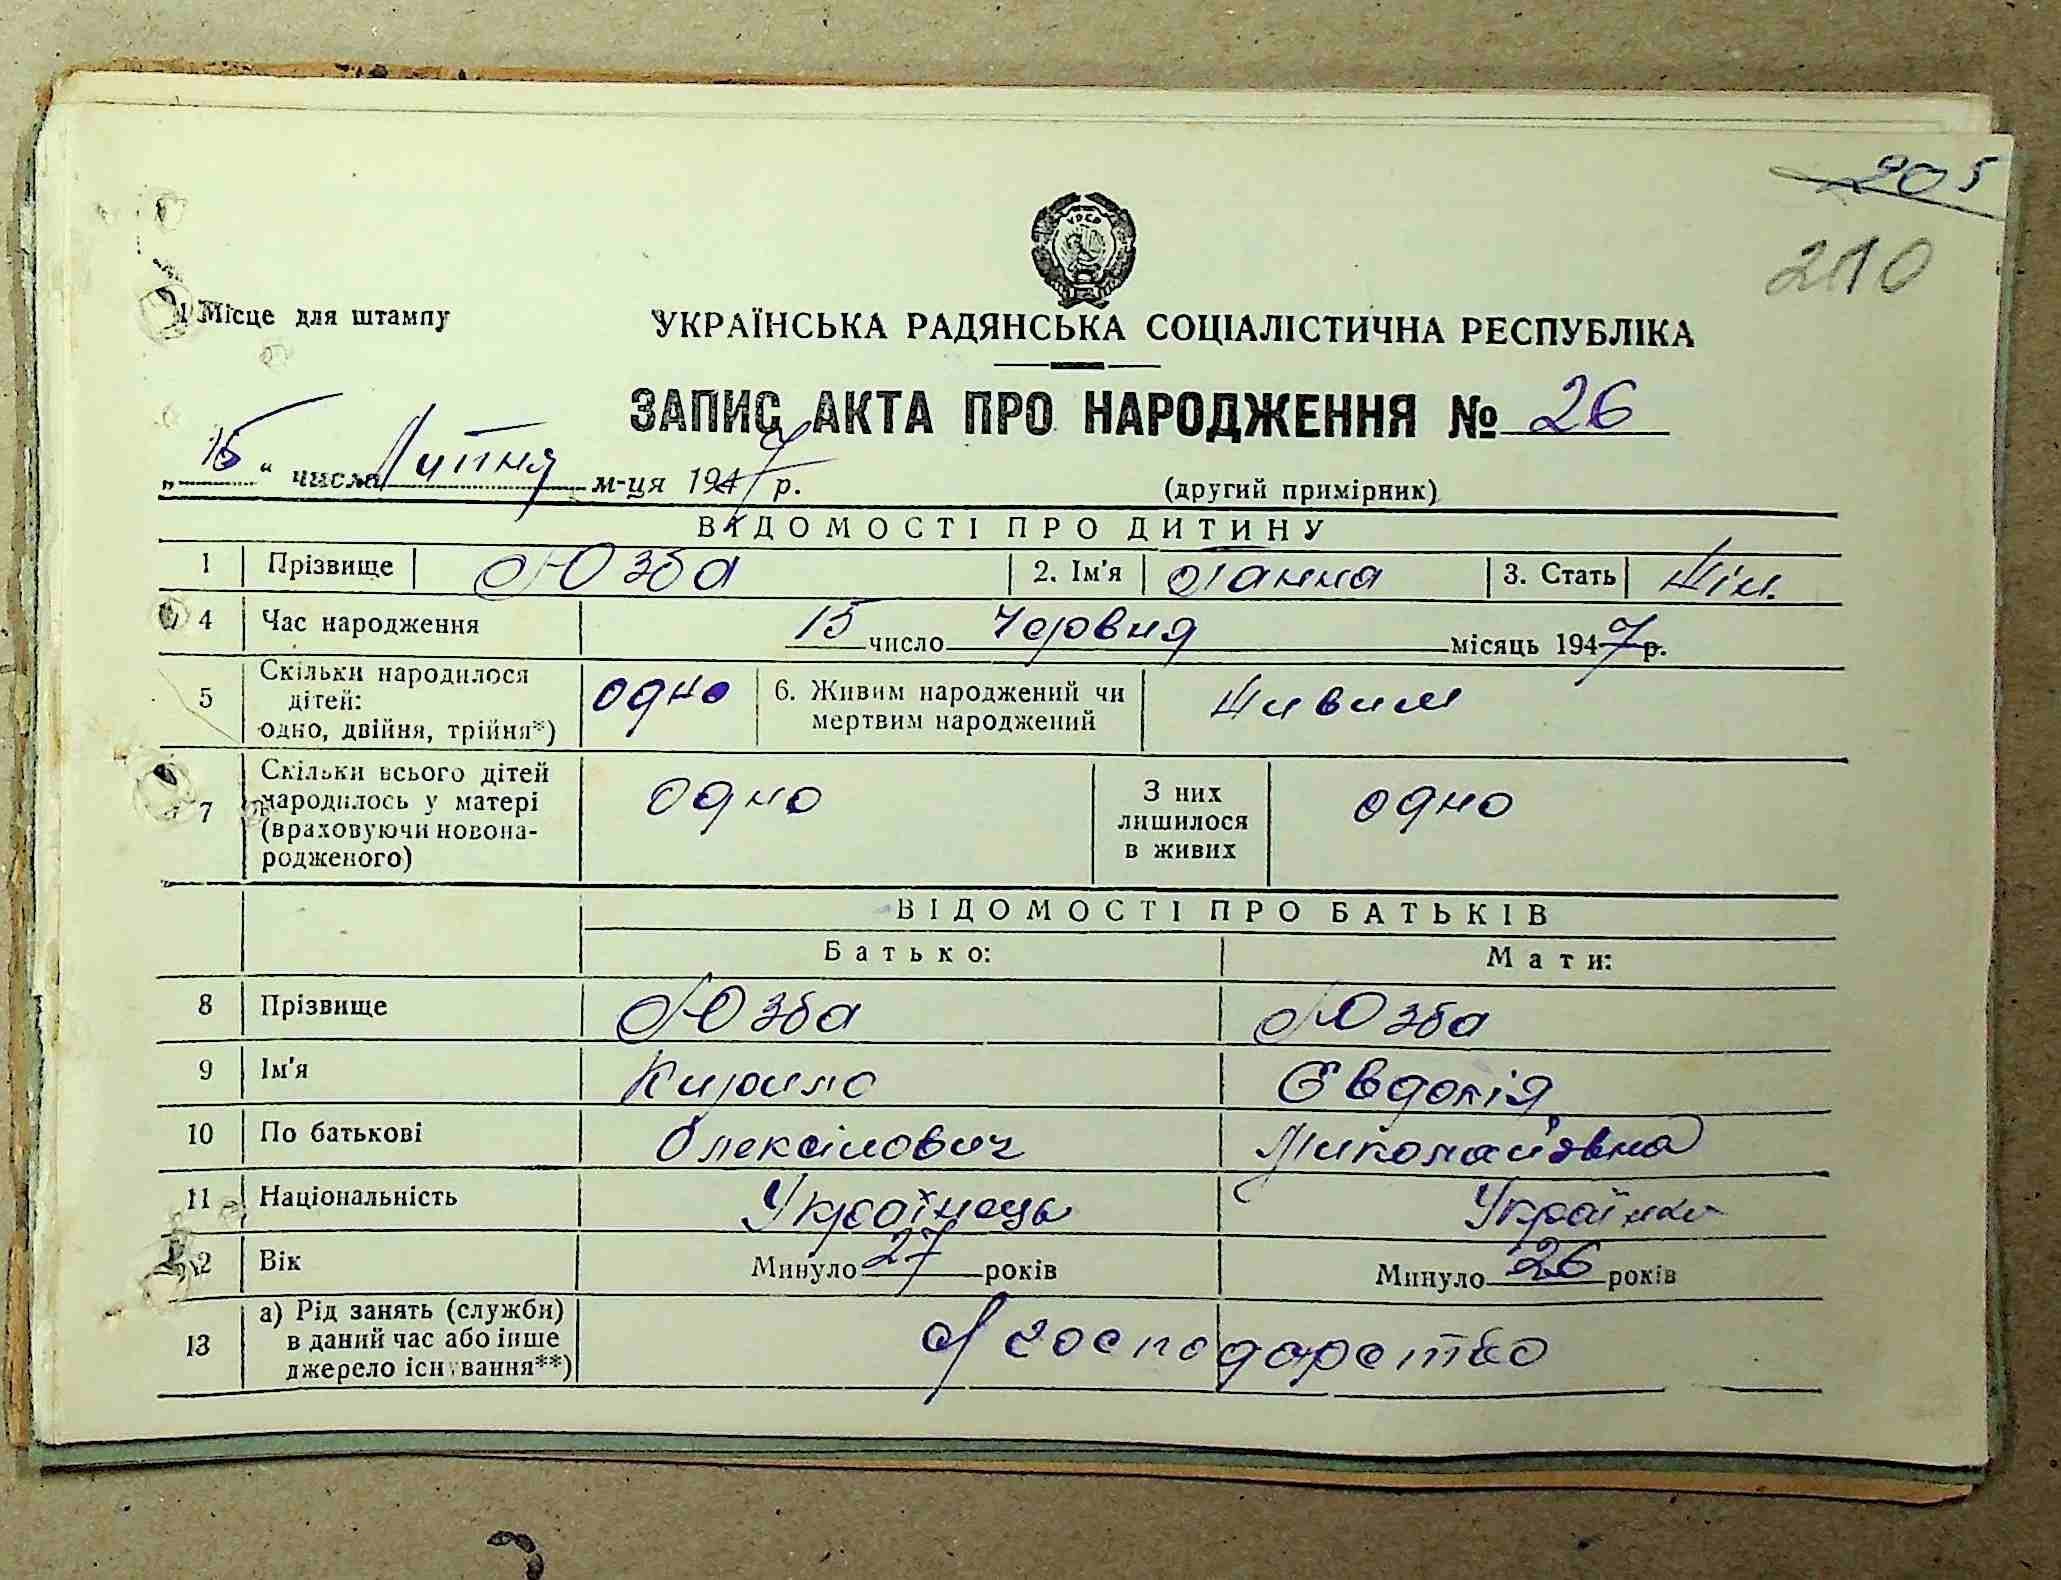 205
210
УРСР
Місце для штампу
УКРАЇНСЬКА РАДЯНСЬКА СОЦІАЛІСТИЧНА РЕСПУБЛІКА
ЗАПИС АКТА ПРО НАРОДЖЕННЯ № 26
„15“ числа Липня м-ця 1947 р. (другий примірник)
ВІДОМОСТІ ПРО ДИТИНУ
1 Прізвище Юзба 2. Ім'я Ганна 3. Стать Жін.
4 Час народження 15 число Червня місяць 1947 р.
5 Скільки народилося дітей: одно, двійня, трійня*) одно 6. Живим народжений чи мертвим народжений Живим
7 Скільки всього дітей народилось у матері (враховуючи новонародженого) одно З них лишилося в живих одно
ВІДОМОСТІ ПРО БАТЬКІВ
Батько: Мати:
8 Прізвище Юзба Юзба
9 Ім'я Кирило Євдокія
10 По батькові Олексійович Миколаївна
11 Національність Українець Українка
12 Вік Минуло 27 років Минуло 26 років
13 а) Рід занять (служби) в даний час або інше джерело існування**) господарство